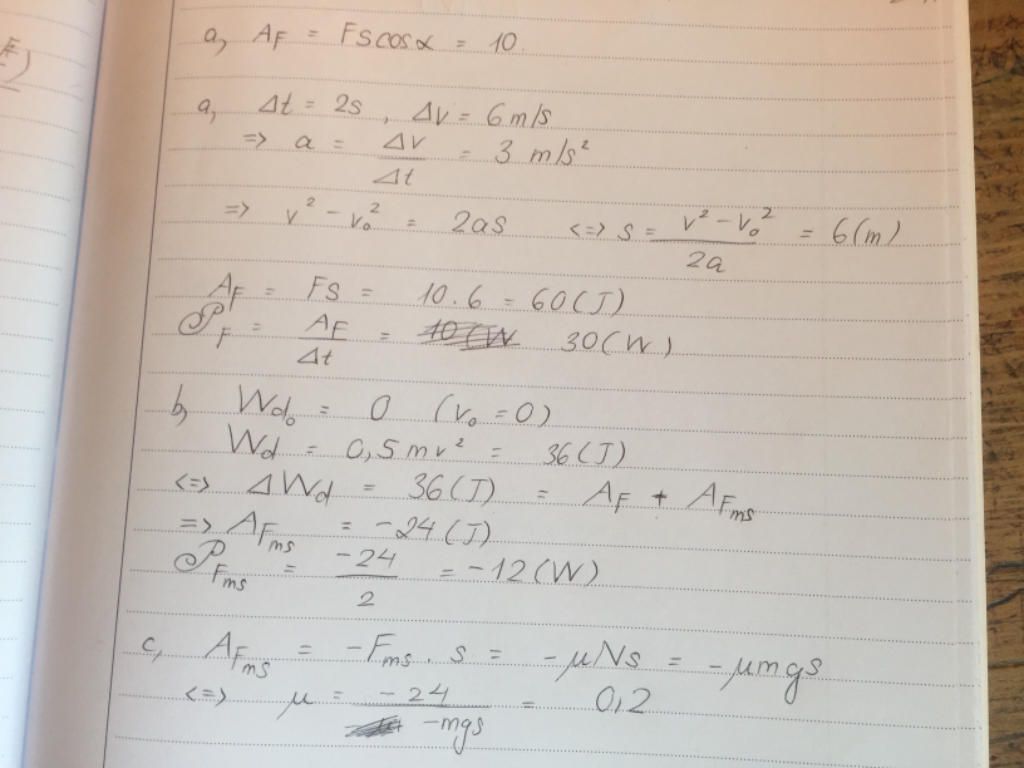 a, A_F = Fscosα = 10
a, Δt = 2s, Δv = 6 m/s
=> a = Δv/Δt = 3 m/s²
=> v² - v₀² = 2as <=> s = (v² - v₀²)/2a = 6(m)
A_F = FS = 10.6 = 60(J)
𝒫_F = A_F/Δt = 30(W)
b, Wđ₀ = 0 (v₀ = 0)
Wđ = 0,5mv² = 36(J)
<=> ΔWđ = 36(J) = A_F + A_Fms
=> A_Fms = -24(J)
𝒫_Fms = -24/2 = -12(W)
c, A_Fms = -Fms . s = -μNs = -μmgs
<=> μ = -24/-mgs = 0,2